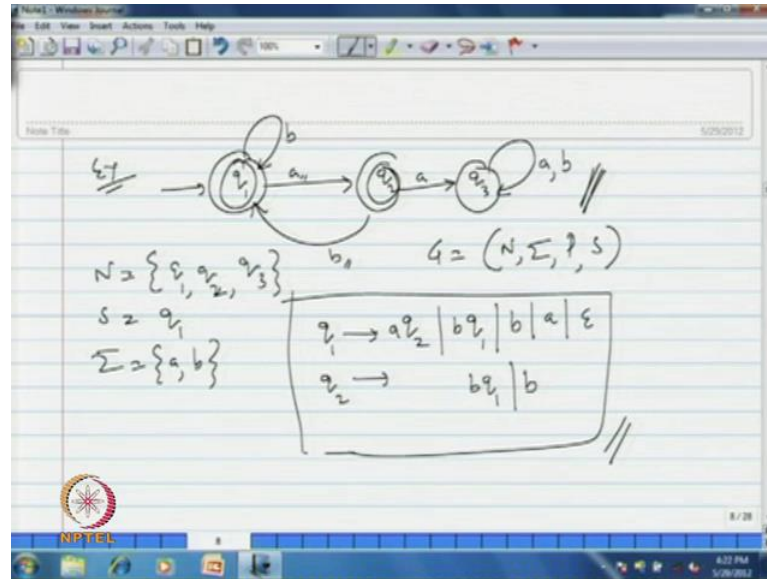 Note1 - Windows Journal
File Edit View Insert Actions Tools Help
100%
Note Title
5/29/2012
b
Ex
q1 a q2 a q3 a, b
b
G = (N, Σ, P, S)
N = {q1, q2, q3}
S = q1
q1 → aq2 | bq1 | b | a | ε
Σ = {a, b}
q2 → bq1 | b
NPTEL
8/28
8
6:22 PM
5/29/2012